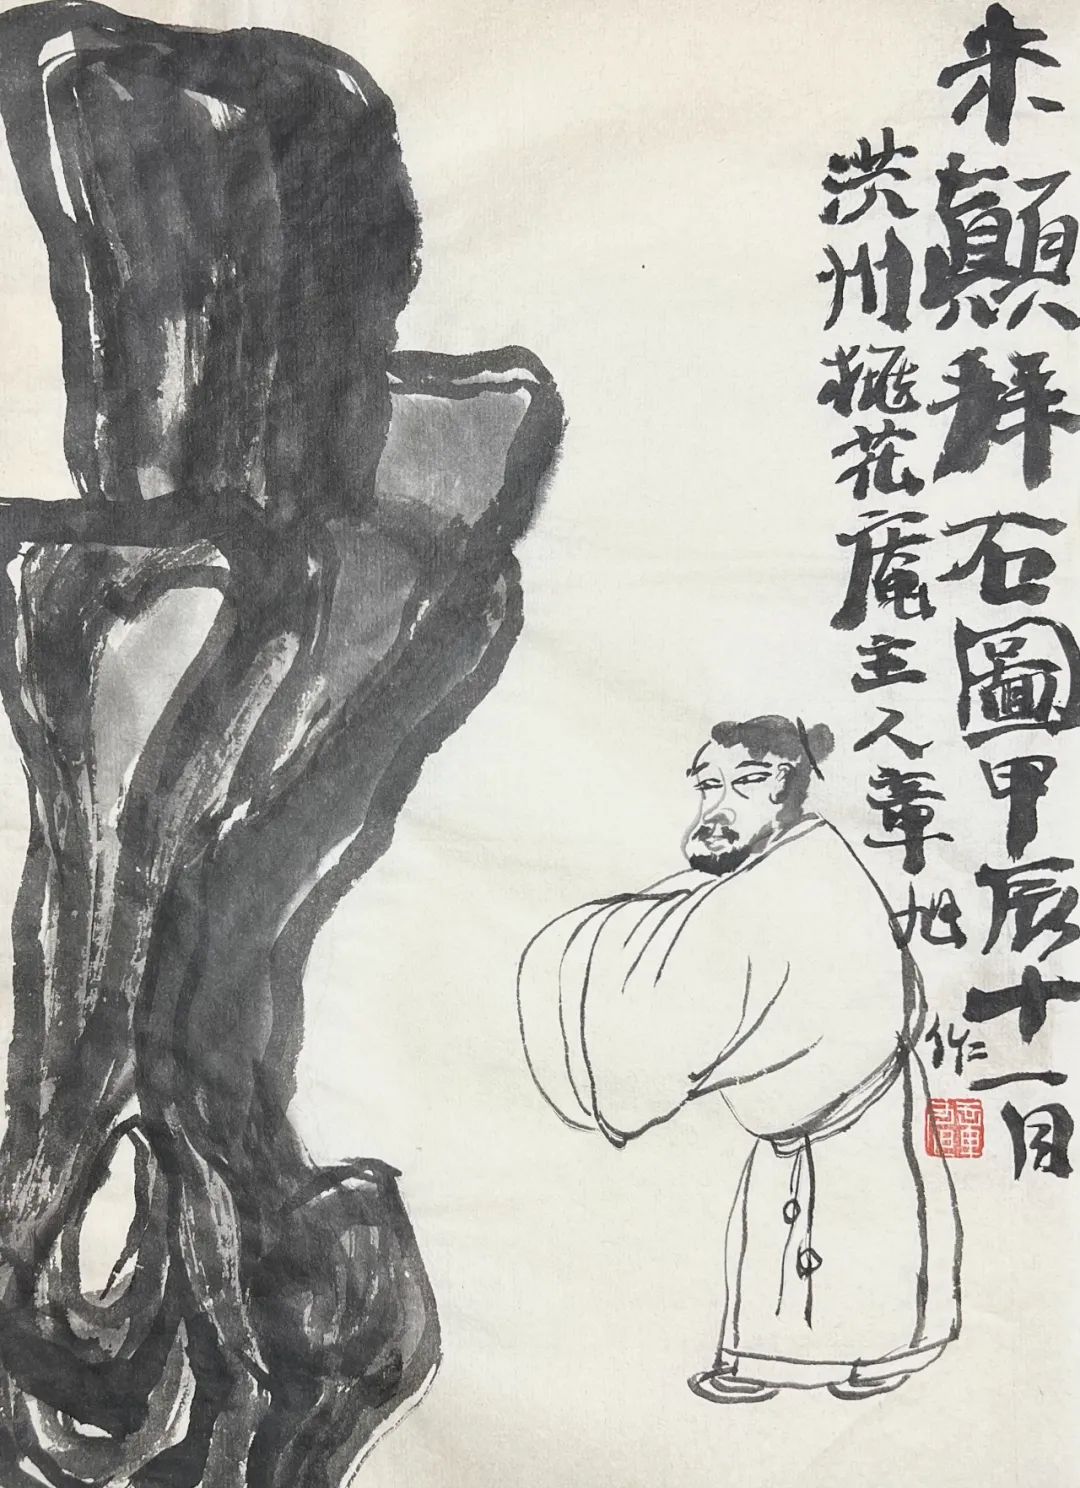 米顛拜石圖甲辰十一月
洪州桃花庵主人章旭作